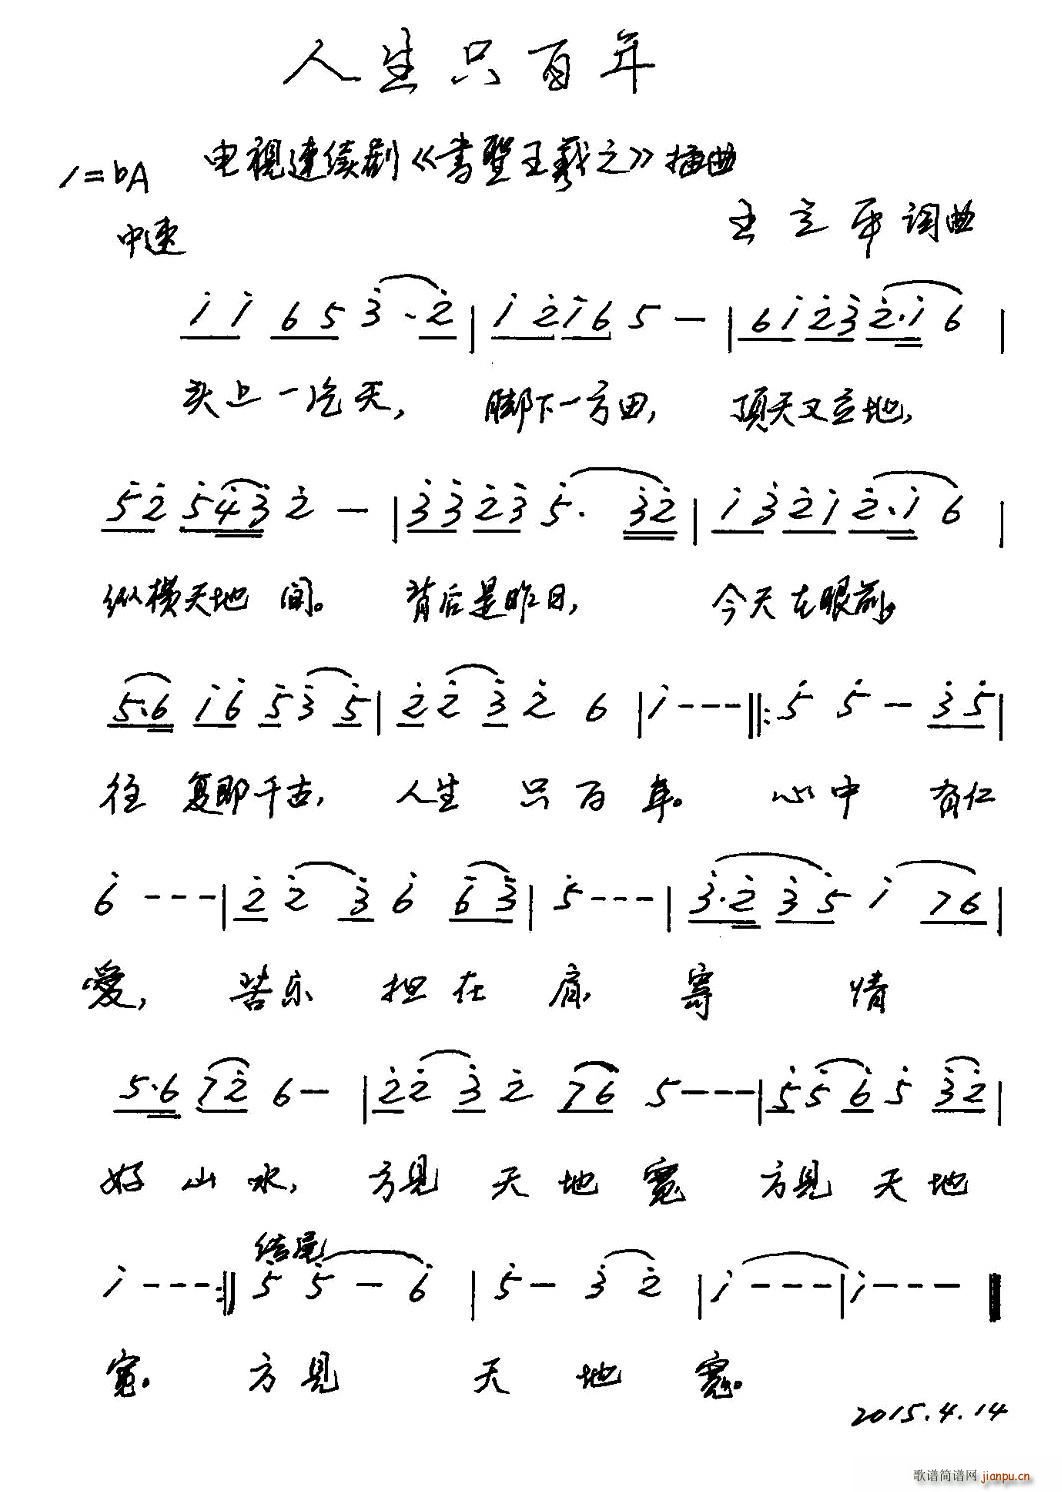 人生只百年
电视連续剧《書聖王羲之》插曲
1=bA
王立平 词曲
中速
i i 6 5 3·2 | i 2 i 6 5 - | 6 i 2 3 2·i 6 |
头上一片天, 脚下一方田, 頂天又立地,
5 2 5 4 3 2 - | 3 3 2 3 5· 3 2 | i 3 2 i 2·i 6 |
纵横天地间。 背后是昨日, 今天在眼前。
5·6 i 6 5 3 5 | 2 2 3 2 6 | i - - - ‖: 5 5 - 3 5 |
往复即千古, 人生只百年。 心中有仁
6 - - - | 2 2 3 6 6 3 | 5 - - - | 3·2 3 5 i 7 6 |
愛, 苦乐担在肩, 寄情
5·6 7 2 6 - | 2 2 3 2 7 6 5 - - - | 5 5 6 5 3 2 |
好山水, 方見天地寬 方見天地
结尾
i - - - :‖ 5 5 - 6 | 5 - 3 2 | i - - - | i - - - ‖
寬。 方見天地寬。
2015.4.14
歌谱简谱网 jianpu.cn